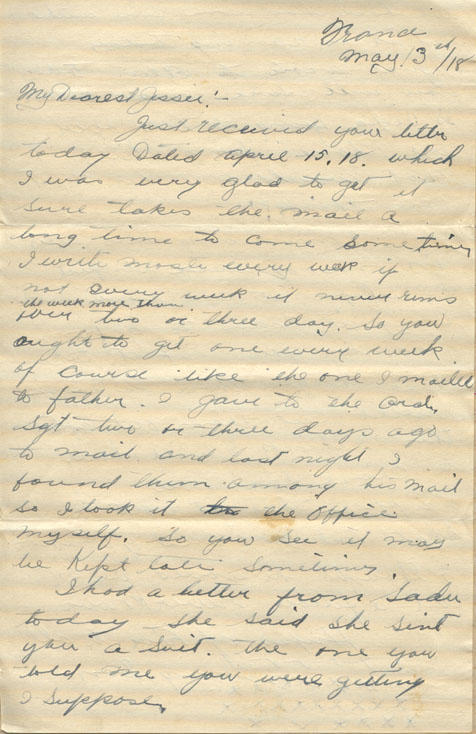 France
May, 3rd/18
My Dearest Jessee:-
Just received your letter
today Dated April 15. 18. which
I was very glad to get it
Sure takes the mail a
long time to come Sometimes
I write most every week if
not every week it never runs
the week more than
over two or three day. So you
ought to get one every week
of course like the one I mailed
to father. I gave to the Ord.
Sgt. two or three days ago
to mail and last night I
found them among his mail
so I took it to the Office
myself. So you see it may
be Kept late Sometimes.
I had a letter from Sadie
today She said She Sent
you a Suit. the one you
told me you were getting
I Suppose.